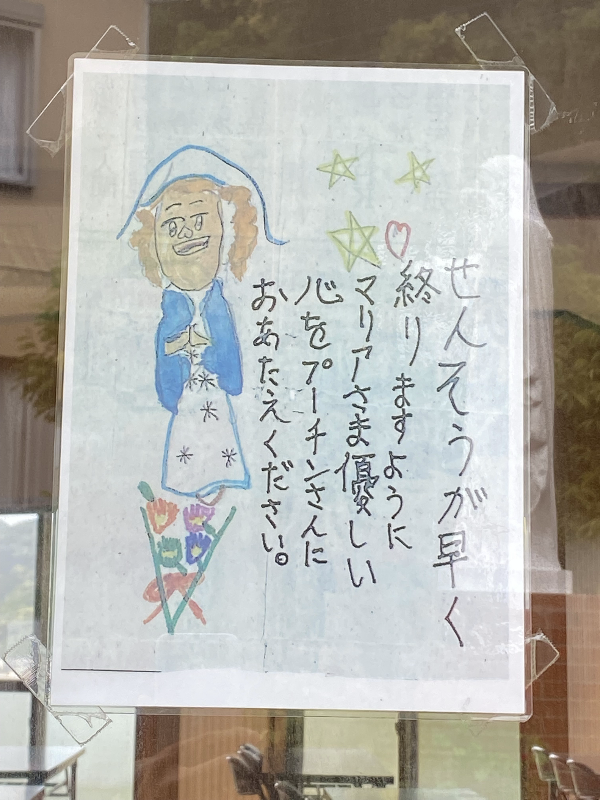 せんそうが早く
終りますように
マリアさま優しい
心をプーチンさんに
おあたえください。